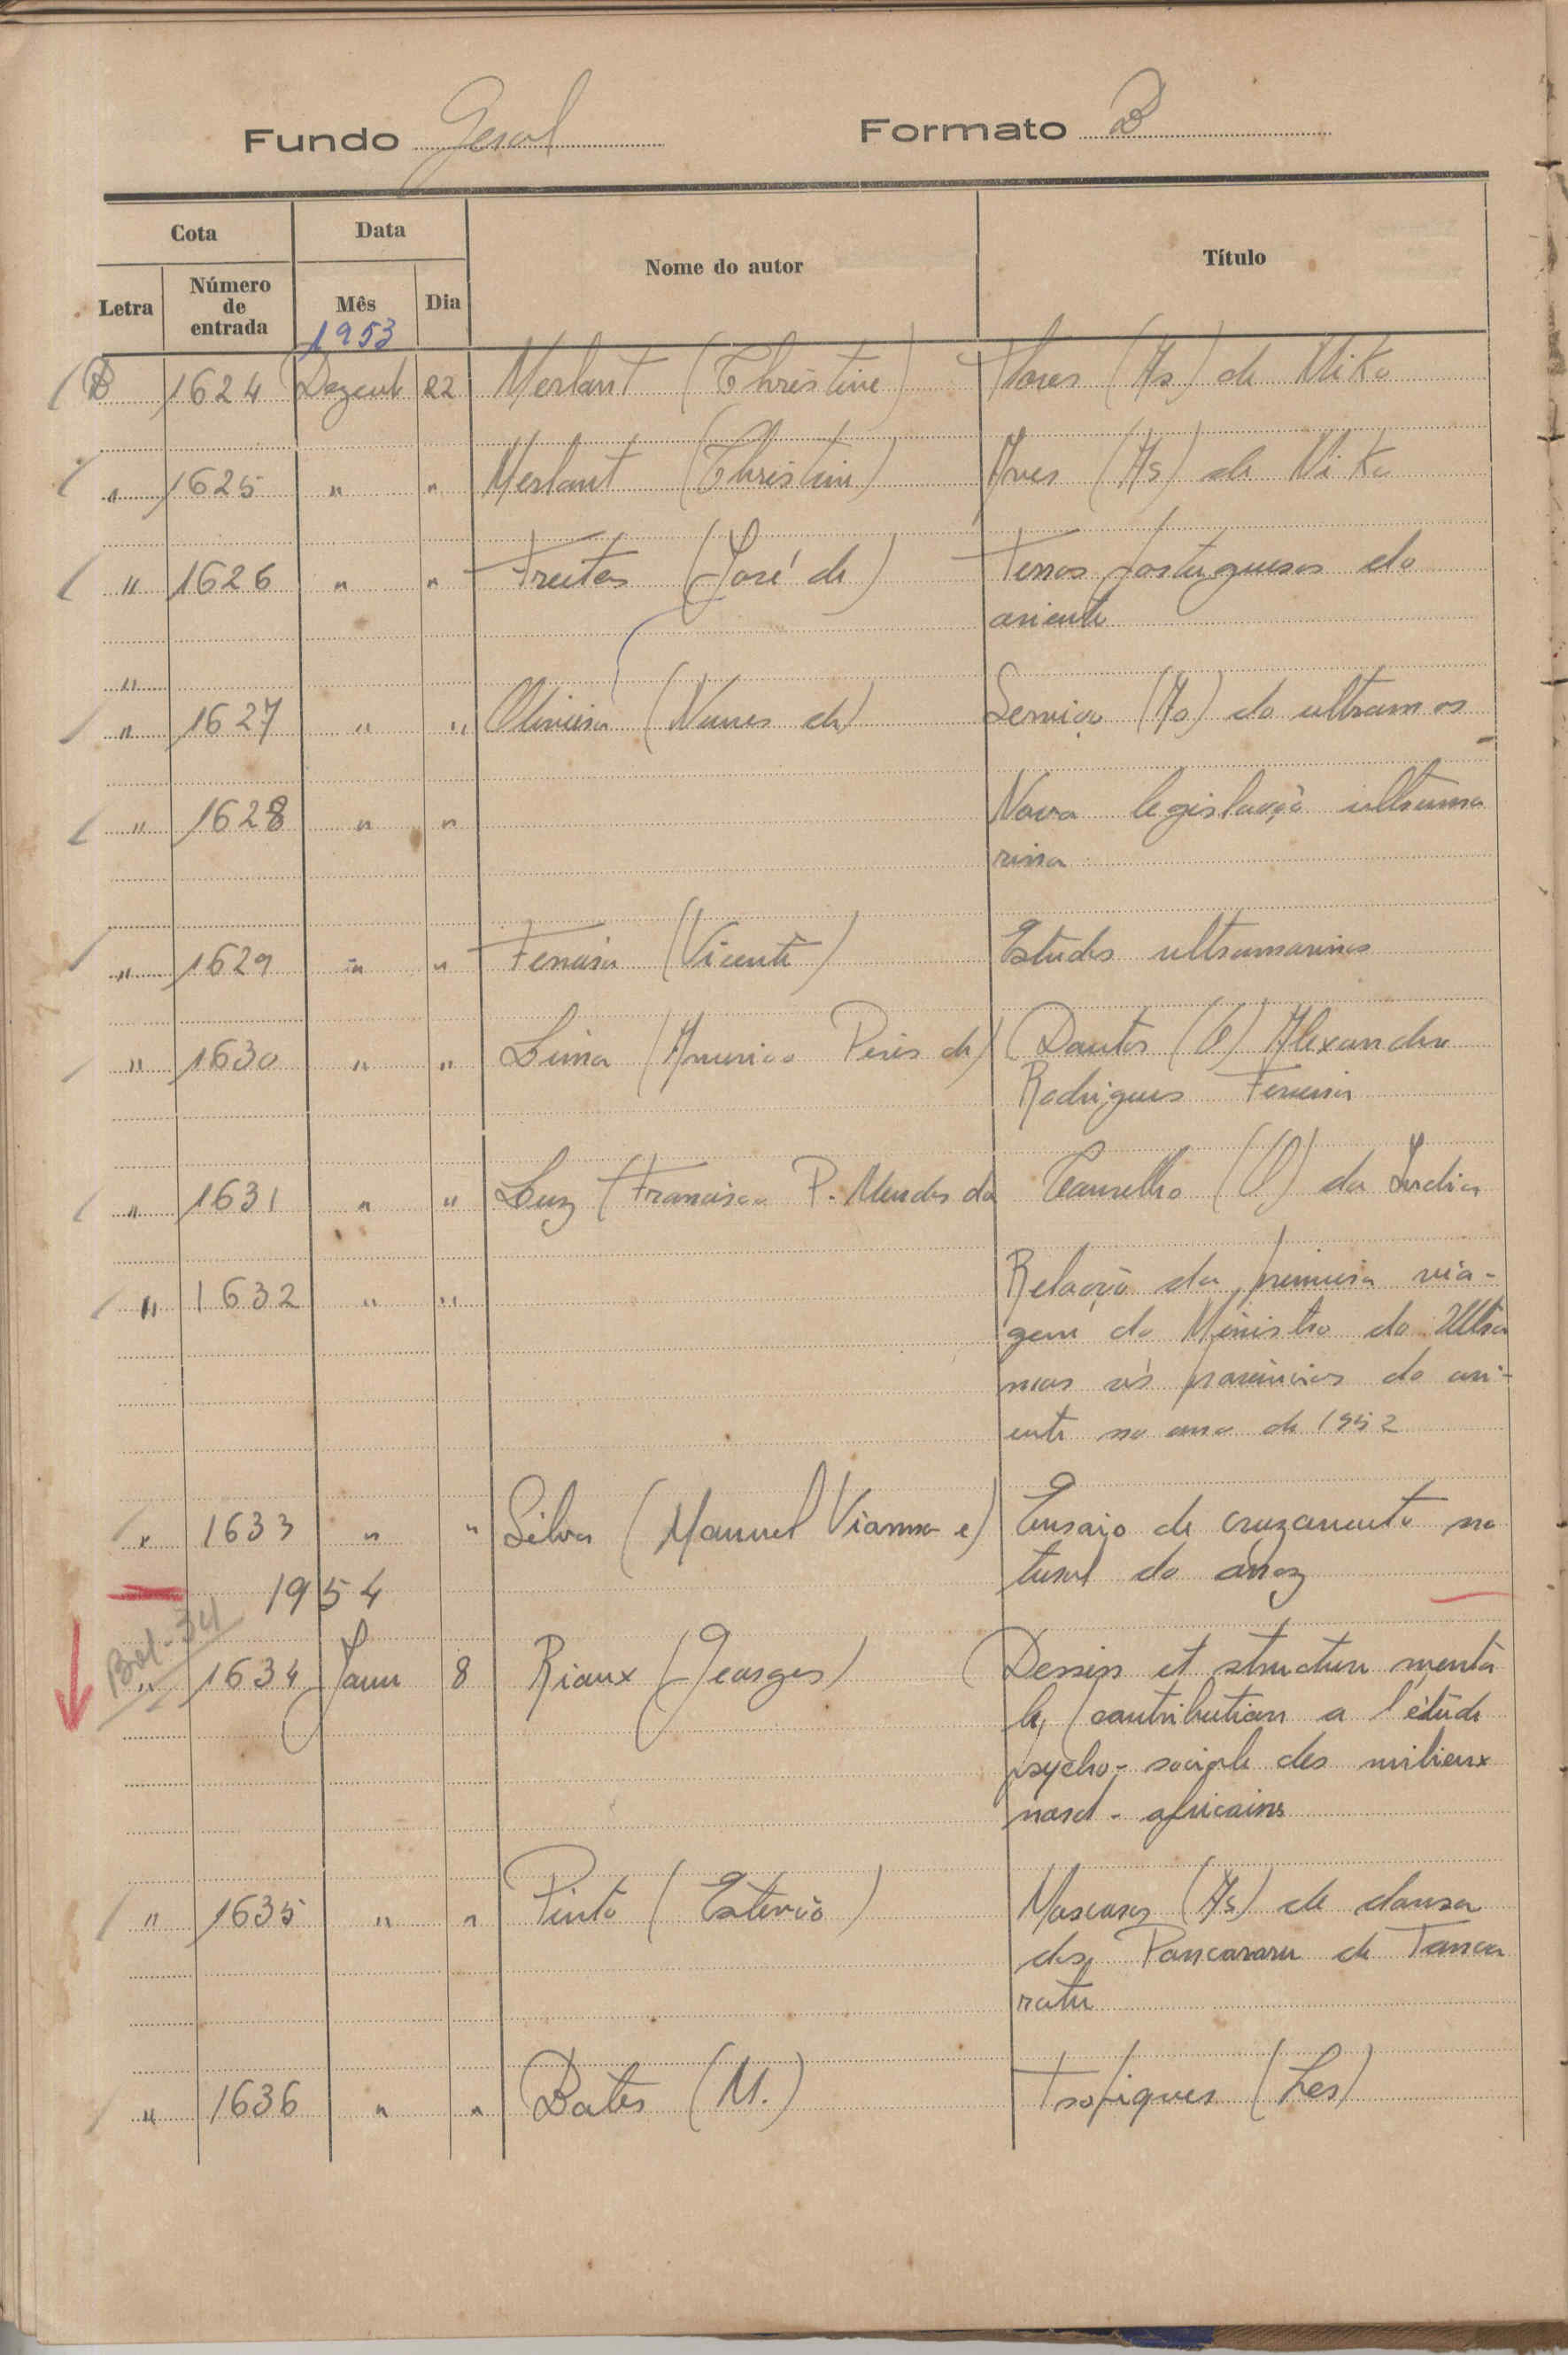 Fundo Geral Formato B
Cota Data Nome do autor Título
Letra Número de entrada Mês Dia
1953
B 1624 Dezemb 22 Merlant (Christine) Flores (As) de Nika
" 1625 " " Merlant (Christine) Aves (As) de Nika
" 1626 " " Freitas (José de) Terras portuguesas do
oriente
"
" 1627 " " Oliveira (Nunes de) Serviço (Ao) do ultramar
" 1628 " " Nova legislação ultrama
rina
" 1629 " " Ferreira (Vicente) Estudos ultramarinos
" 1630 " " Lima (Americo Pires de) Doutor (O) Alexandre
Rodrigues Ferreira
" 1631 " " Luz (Francisco P. Mendes da Conselho (O) da India
" 1632 " " Relação da primeira via-
gem do Ministro do Ultra
mar às provincias do ori-
ente no ano de 1952
" 1633 " " Silva (Manuel Vianna e) Ensaio de cruzamento na
tural do arroz
1954
Bol. 34
" 1634 Jan 8 Rioux (Georges) Dessin et structure menta
le, contribution a l'étude
psycho-sociale des milieux
nord-africains
" 1635 " " Pinto (Estevão) Mascaras (As) de dansa
dos Pancararu de Tanca
ratu
" 1636 " " Bates (M.) Tropiques (Les)